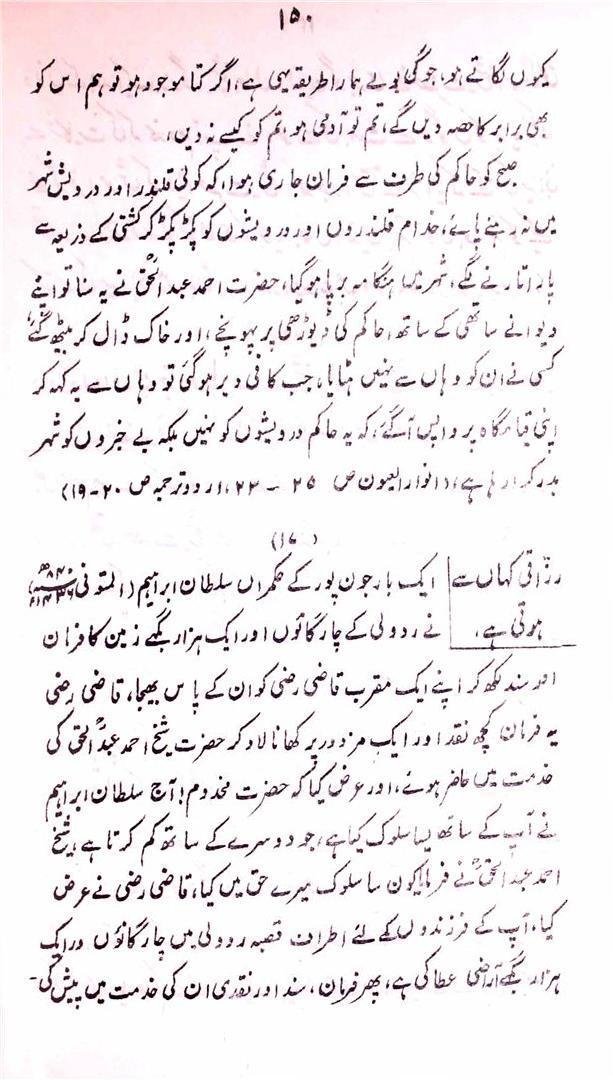 ۱۵۰
کیوں لگاتے ہو، جوگی بولے ہمارا طریقہ یہی ہے، اگر کتا موجود ہو تو ہم اس کو
بھی برابر کا حصہ دیں گے، تم تو آدمی ہو، تم کو کیسے نہ دیں،
صبح کو حاکم کی طرف سے فرمان جاری ہوا، کہ کوئی قلندر اور درویش شہر
میں نہ رہنے پائے، خدام قلندروں اور درویشوں کو پکڑ پکڑ کر کشتی کے ذریعہ سے
پار اتارنے لگے، شہر میں ہنگامہ برپا ہو گیا، حضرت احمد عبد الحقؒ نے یہ سنا تو اپنے
دیوانے ساتھی کے ساتھ حاکم کی ڈیوڑھی پر پہونچے، اور خاک ڈال کر بیٹھ گئے،
کسی نے ان کو وہاں سے نہیں ہٹایا، جب کافی دیر ہو گئی تو وہاں سے یہ کہہ کر
اپنی قیام گاہ پر واپس آگئے، کہ یہ حاکم درویشوں کو نہیں بلکہ بے خبروں کو شہر
بدر کرا رہا ہے، (انوار العیون ص ۲۵ - ۲۲، اردو ترجمہ ص ۲۰-۱۹)
(۱۷)
رزاقی کہاں سے ایک بار جون پور کے حکمراں سلطان ابراہیم (المتوفی ۸۴۰ھ
ہوتی ہے، نے ردولی کے چار گائوں اور ایک ہزار بگھے زمین کا فرمان
اور سند لکھ کر اپنے ایک مقرب قاضی رضی کو ان کے پاس بھیجا، قاضی رضی
یہ فرمان کچھ نقد اور ایک مزدور پر کھانا لاد کر حضرت شیخ احمد عبد الحقؒ کی
خدمت میں حاضر ہوئے، اور عرض کیا کہ حضرت مخدوم! آج سلطان ابراہیم
نے آپ کے ساتھ ایسا سلوک کیا ہے، جو دوسرے کے ساتھ کم کرتا ہے، شیخ
احمد عبد الحقؒ نے فرمایا کون سا سلوک میرے حق میں کیا، قاضی رضی نے عرض
کیا، آپ کے فرزندوں کے لئے اطراف قصبہ ردولی میں چار گائوں اور ایک
ہزار بگھے آراضی عطا کی ہے، پھر فرمان، سند اور نقدی ان کی خدمت میں پیش کی۔